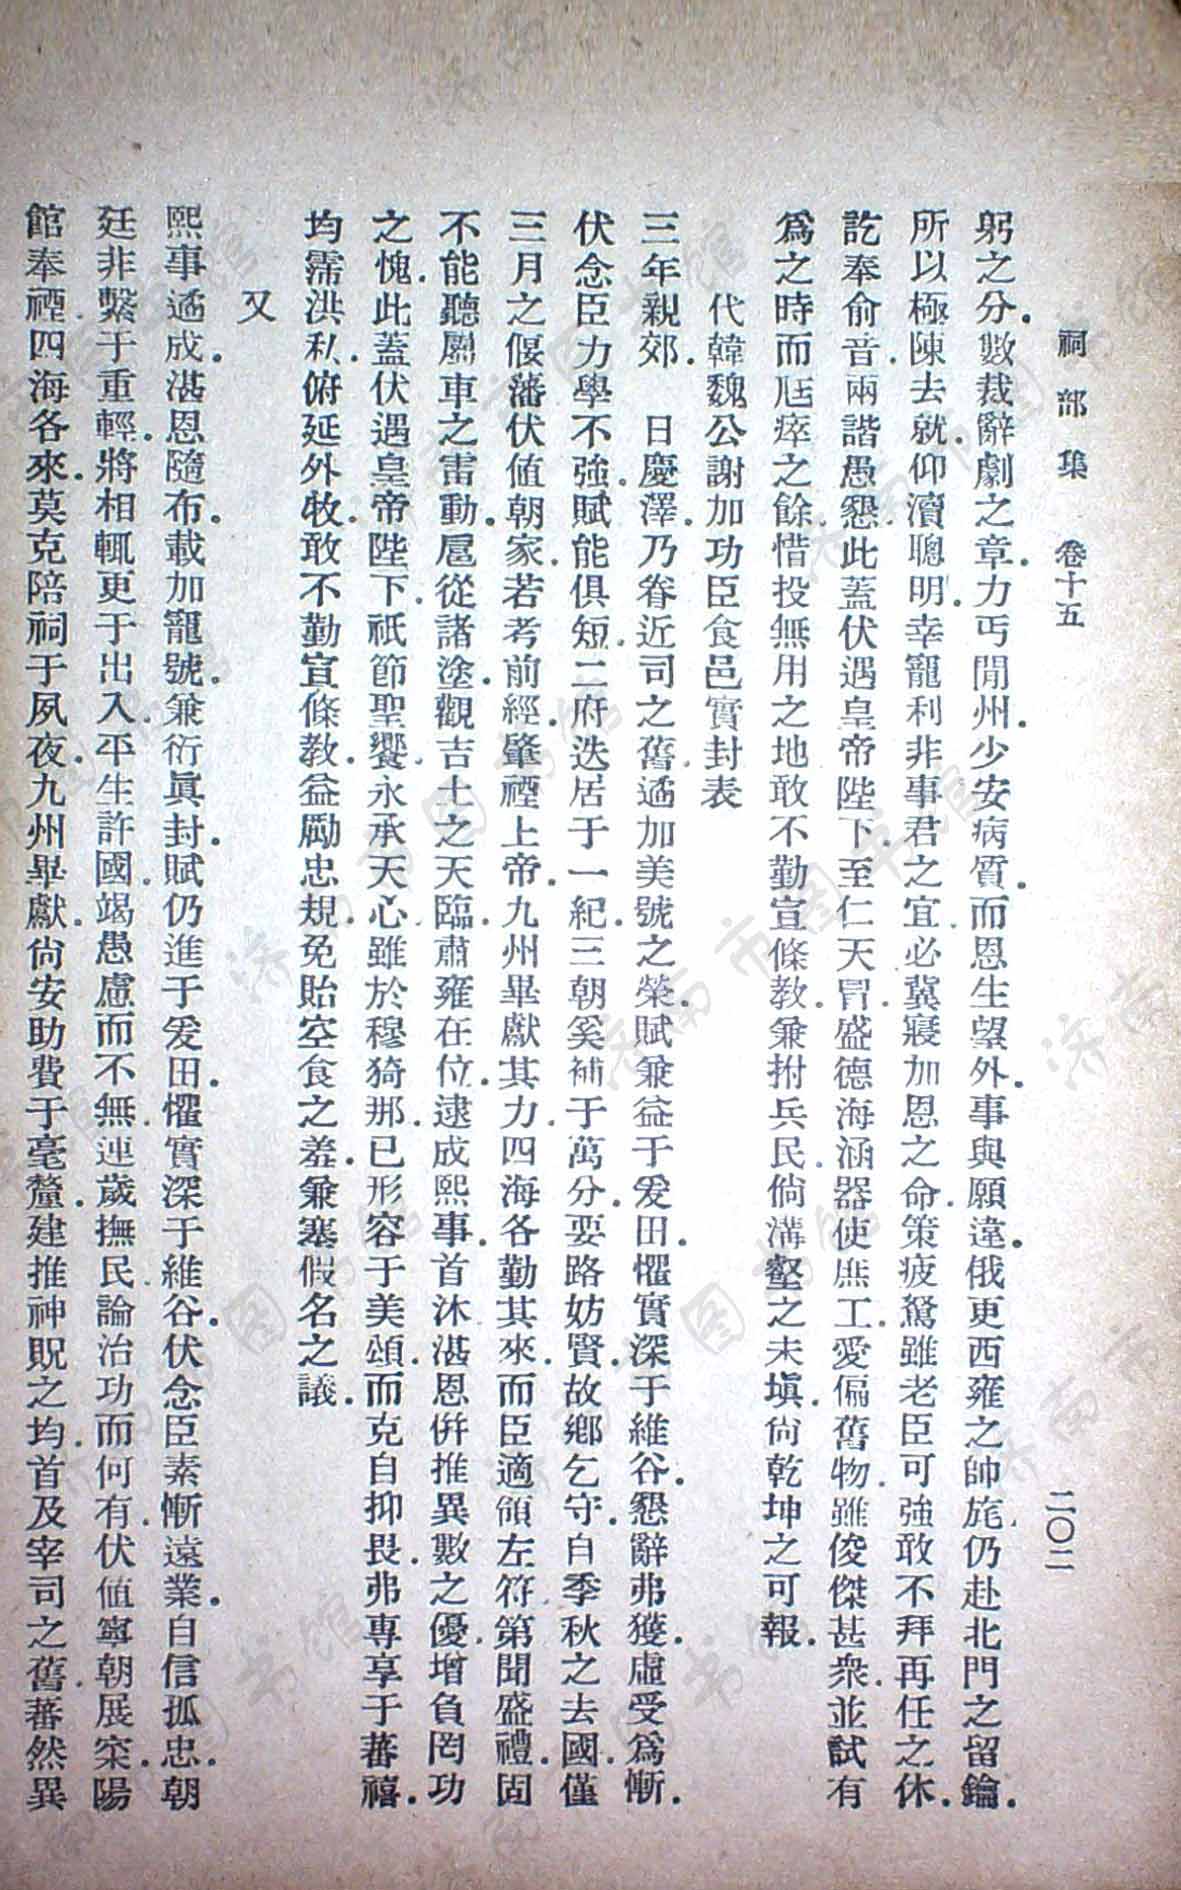 祠部集 卷十五 二〇二
躬之分．數裁辭劇之章．力丐閒州．少安病質．而恩生望外．事與願違．俄更西雍之帥旄．仍赴北門之留鑰．
所以極陳去就．仰瀆聰明．幸寵利非事君之宜．必冀寢加恩之命．策疲駑雖老臣可強．敢不拜再任之休．
訖奉俞音．兩諧愚懇．此蓋伏遇皇帝陛下．至仁天冒．盛德海涵．器使庶工．愛偏舊物．雖俊傑甚衆．並試有
爲之時．而尫瘁之餘．惜投無用之地．敢不勤宣條教．兼拊兵民．倘溝壑之未塡．尙乾坤之可報．
代韓魏公謝加功臣食邑實封表
三年親郊．日慶澤．乃眷近司之舊．遹加美號之榮．賦兼益于爰田．懼實深于維谷．懇辭弗獲．虛受爲慚．
伏念臣力學不強．賦能俱短．二府迭居于一紀．三朝奚補于萬分．要路妨賢．故鄉乞守．自季秋之去國．僅
三月之偃藩．伏値朝家．若考前經．肇禋上帝．九州畢獻其力．四海各勤其來．而臣適領左符．第聞盛禮．固
不能聽屬車之雷動．扈從諸塗．觀吉土之天臨．肅雍在位．逮成熙事．首沐湛恩．併推異數之優．增負罔功
之愧．此蓋伏遇皇帝陛下．祇節聖饗．永承天心．雖於穆猗那．已形容于美頌．而克自抑畏．弗專享于蕃禧．
均濡洪私．俯延外牧．敢不勤宣條教．益勵忠規．免貽空食之羞．兼塞假名之議．
又
熙事遹成．湛恩隨布．載加寵號．兼衍眞封．賦仍進于爰田．懼實深于維谷．伏念臣素慚遠業．自信孤忠．朝
廷非繫于重輕．將相輒更于出入．平生許國．竭愚慮而不無．連歲撫民．論治功而何有．伏値寧朝展寀．陽
館奉禋．四海各來．莫克陪祠于夙夜．九州畢獻．尙安助費于毫釐．建推神貺之均．首及宰司之舊．蕃然異